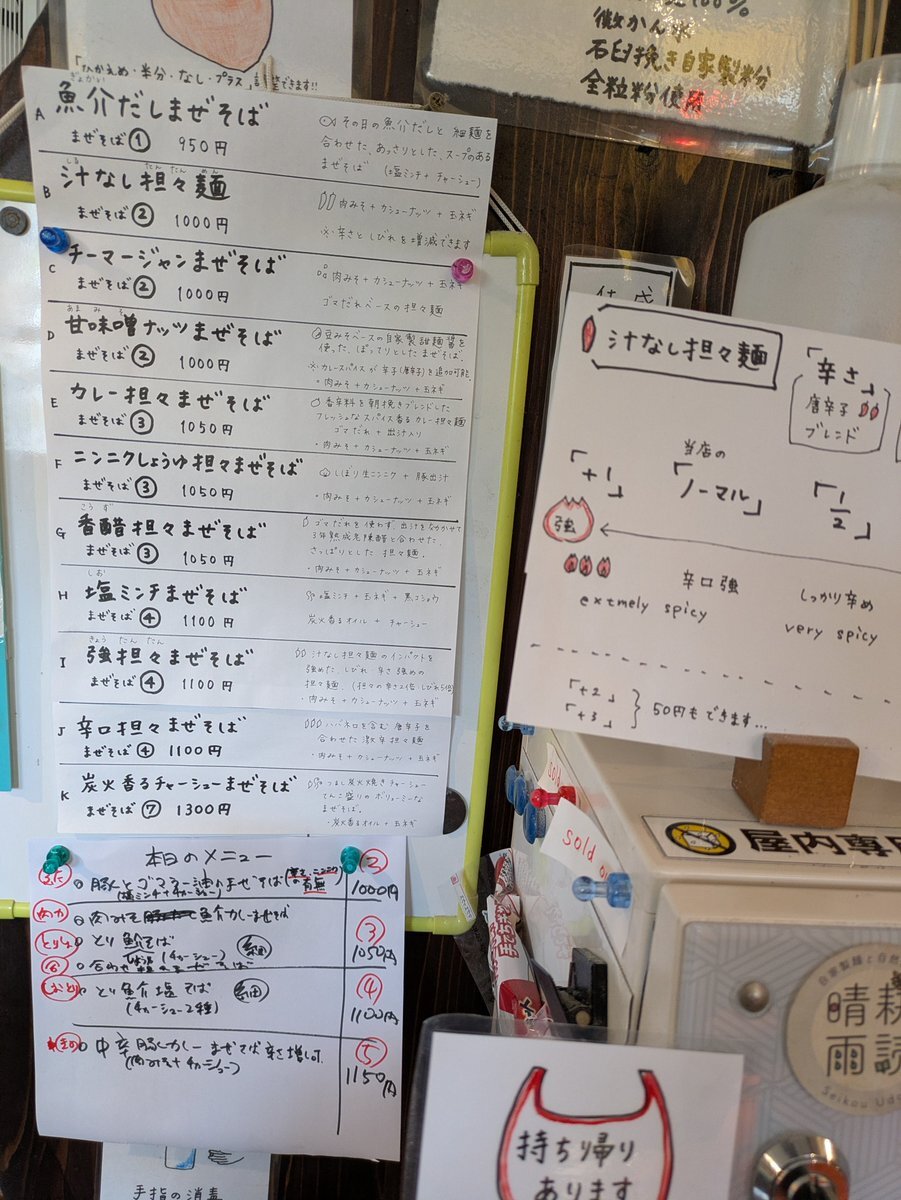 「ひかえめ・半分・なし・プラス」
できます!!
100%
微かん水
石臼挽き自家製粉
全粒粉使用
A 魚介だしまぜそば
ぎょかい
まぜそば① 950円
その日の魚介だしと 細麺を
合わせた、あっさりとした、スープのある
まぜそば (塩ミンチ+チャーシュー)
B 汁なし担々麺
しる たん たん めん
まぜそば② 1000円
肉みそ+カシューナッツ+玉ネギ
※辛さとしびれを増減できます
C チーマージャンまぜそば
まぜそば② 1000円
肉みそ+カシューナッツ+玉ネギ
ゴマだれベースの担々麺
D 甘味噌ナッツまぜそば
あま み そ
まぜそば② 1000円
豆みそベースの自家製甜麺醤を
使った、ぽってりとしたまぜそば。
※カレースパイスか辛子(唐辛子)を追加可能。
・肉みそ+カシューナッツ+玉ネギ
E カレー担々まぜそば
まぜそば③ 1050円
香辛料を朝挽きブレンドした
フレッシュなスパイス香るカレー担々麺
ゴマだれ+出汁入り
・肉みそ+カシューナッツ+玉ネギ
F ニンニクしょうゆ担々まぜそば
まぜそば③ 1050円
しぼり生ニンニク + 豚出汁
・肉みそ+カシューナッツ+玉ネギ
G 香醋担々まぜそば
こう ず
まぜそば③ 1050円
ゴマだれを使わず、出汁をなかせて
3年熟成老陳醋と合わせた、
さっぱりとした 担々麺。
・肉みそ+カシューナッツ+玉ネギ
H 塩ミンチまぜそば
しお
まぜそば④ 1100円
塩ミンチ+玉ネギ+黒コショウ
炭火香るオイル + チャーシュー
I 強担々まぜそば
きょう たん たん
まぜそば④ 1100円
汁なし担々麺のインパクトを
強めた、しびれ・辛さ強めの
担々麺、(担々の辛さ2倍・しびれ5倍)
・肉みそ+カシューナッツ+玉ネギ
J 辛口担々まぜそば
まぜそば④ 1100円
ハバネロを含む 唐辛子を
合わせた 激辛担々麺
・肉みそ+カシューナッツ+玉ネギ
K 炭火香るチャーシューまぜそば
まぜそば⑦ 1300円
つるし炭火焼きチャーシュー
てんこ盛りのボリューミーな
まぜそば。
・炭火香るオイル+玉ネギ
本日のメニュー
②
1000円
有無
魚介カレーまぜそば
③
1050円
とり
細
④
とり魚介塩そば 細
(チャーシュー2種)
1100円
⑤
中辛豚カレーまぜそば
1150円
手指の消毒
汁なし担々麺
「辛さ」
唐辛子
ブレンド
「+1」
当店の
「ノーマル」
「1/2」
強
辛口強
extmely spicy
しっかり辛め
very spicy
「+2」
「+3」
50円もできます…
Sold
Sold
屋内専
自家製麺と自然
晴耕
雨読
Seikou Udo
持ち帰り
あります